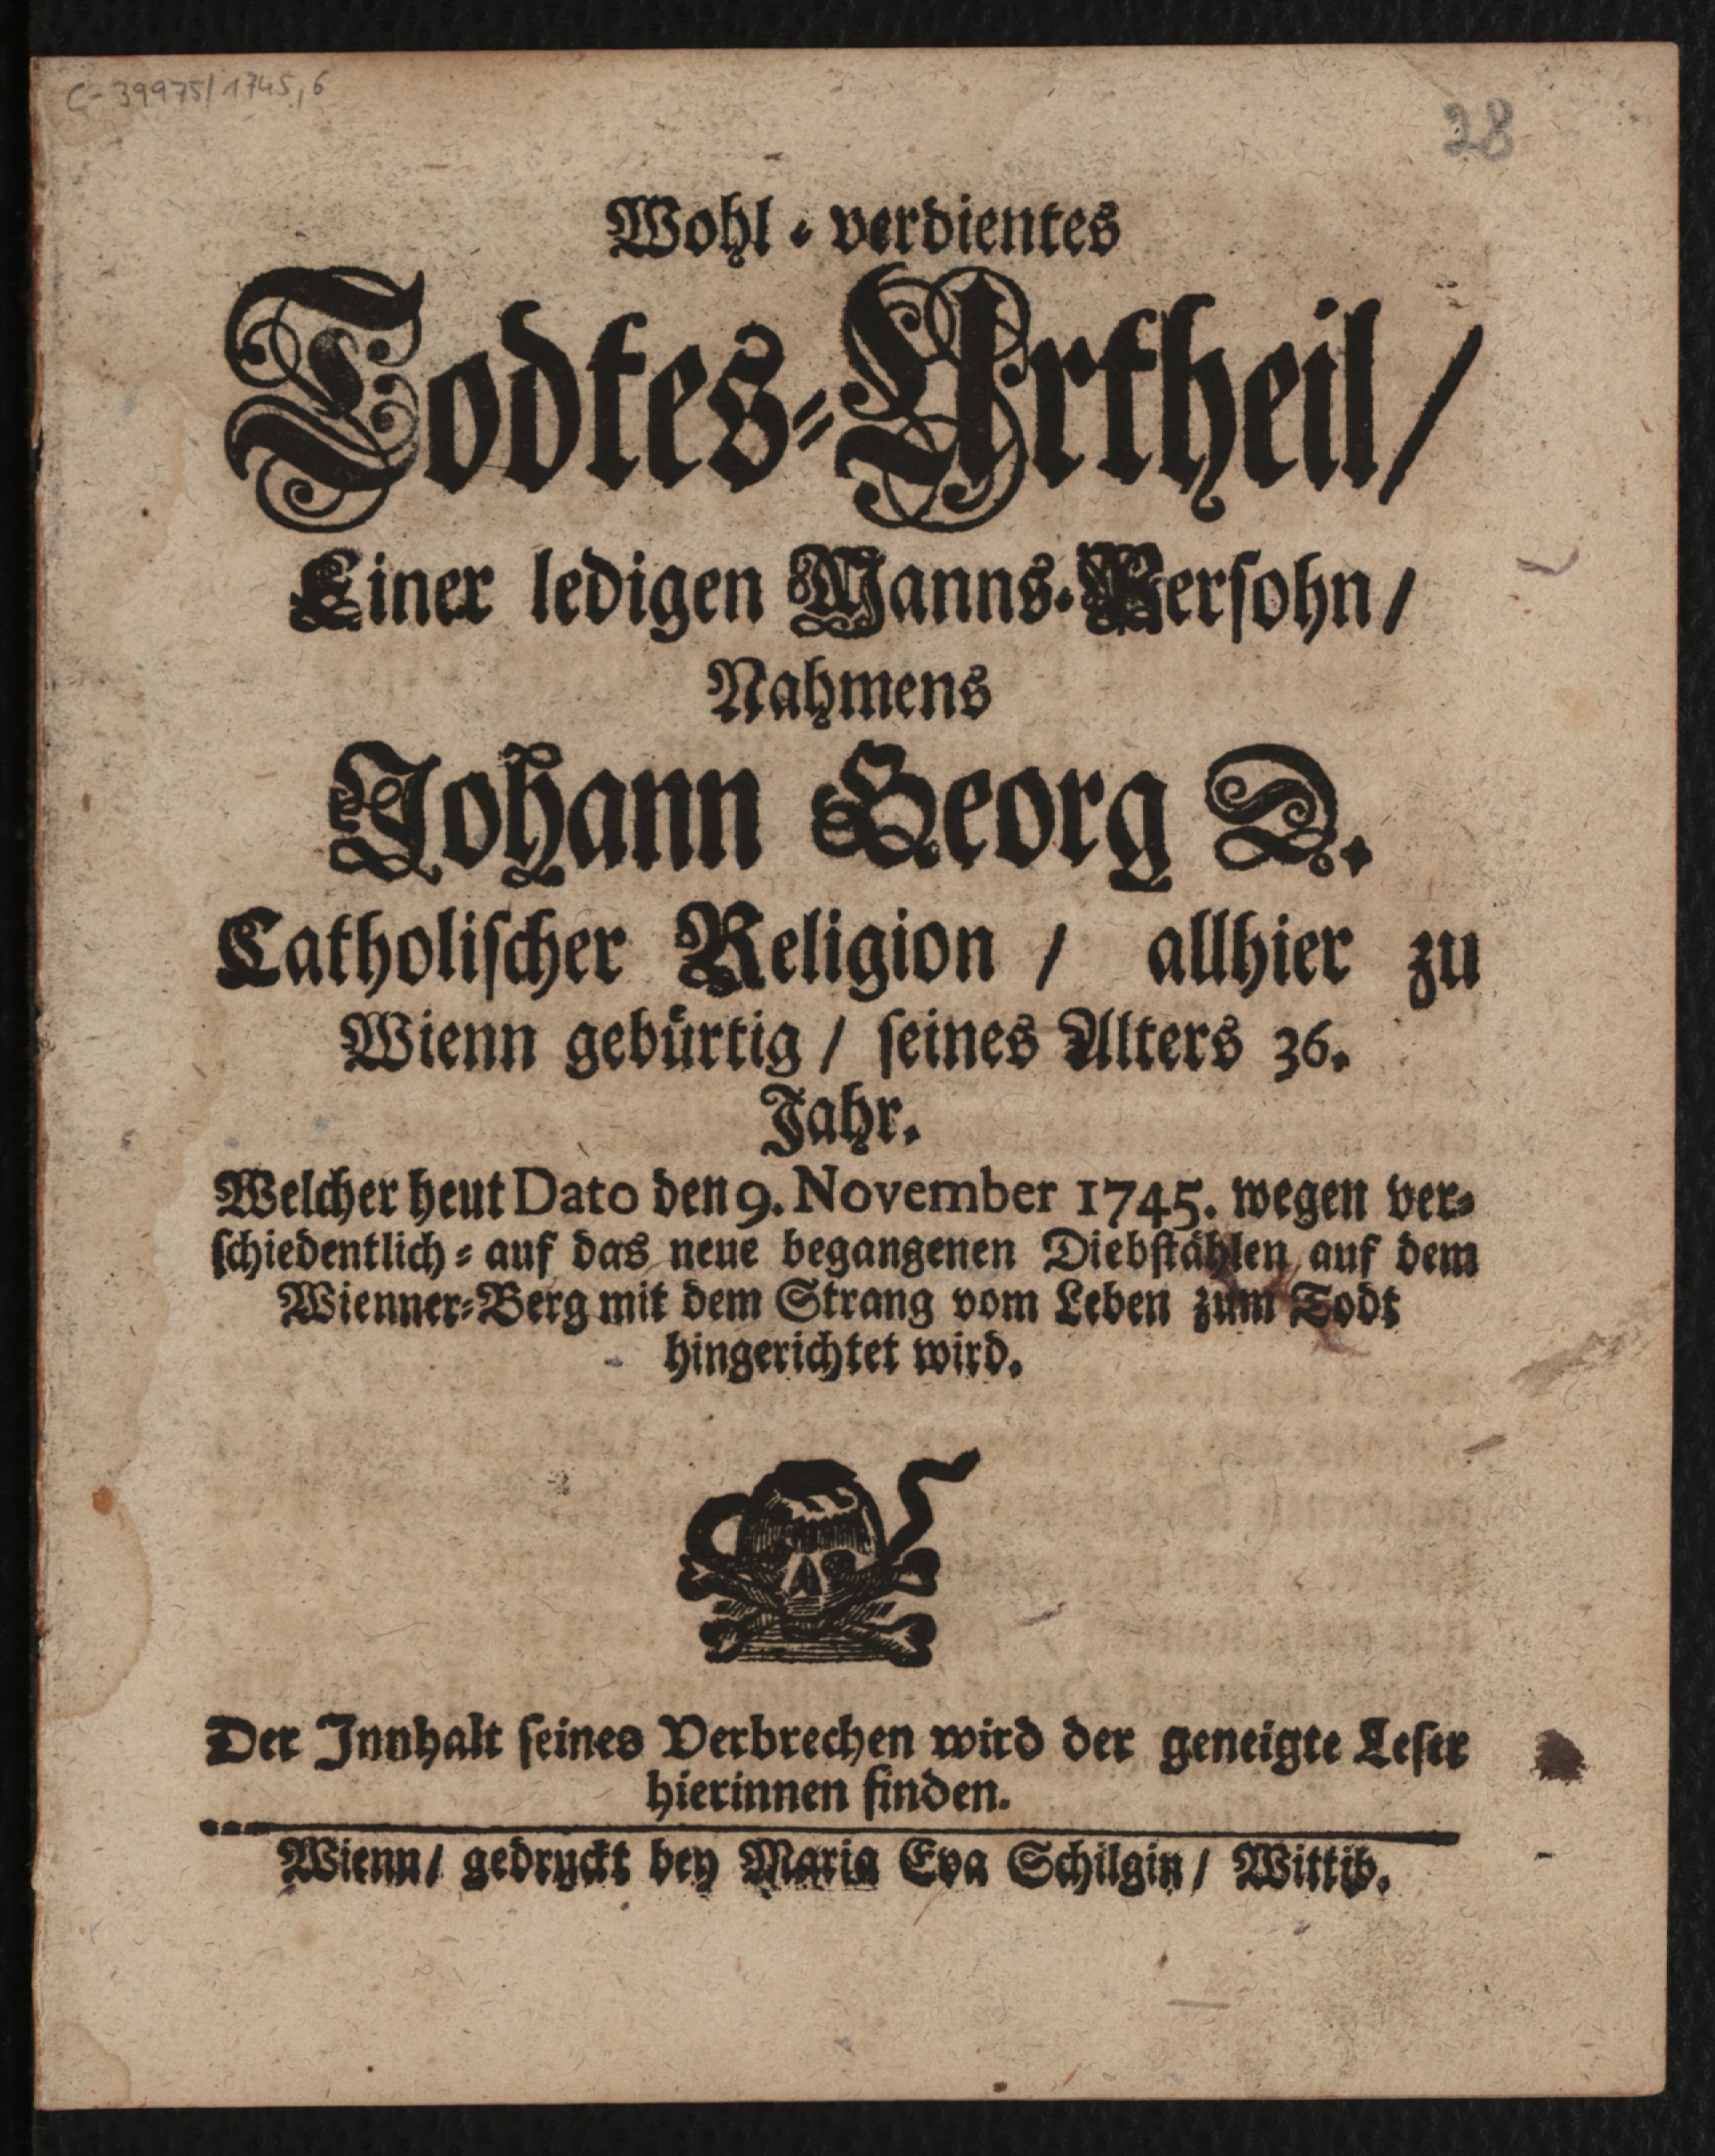 C-39975/1745,6
28
Wohl-verdientes
Todtes-Urtheil/
Einer ledigen Manns-Persohn/
Nahmens
Johann Georg D.
Catholischer Religion / allhier zu
Wienn gebürtig / seines Alters 36.
Jahr.
Welcher heut Dato den 9. November 1745. wegen ver-
schiedentlich-auf das neue begangenen Diebstählen auf dem
Wienner-Berg mit dem Strang vom Leben zum Todt
hingerichtet wird.
Der Innhalt seines Verbrechen wird der geneigte Leser
hierinnen finden.
Wienn/ gedruckt bey Maria Eva Schilgin/ Wittib.